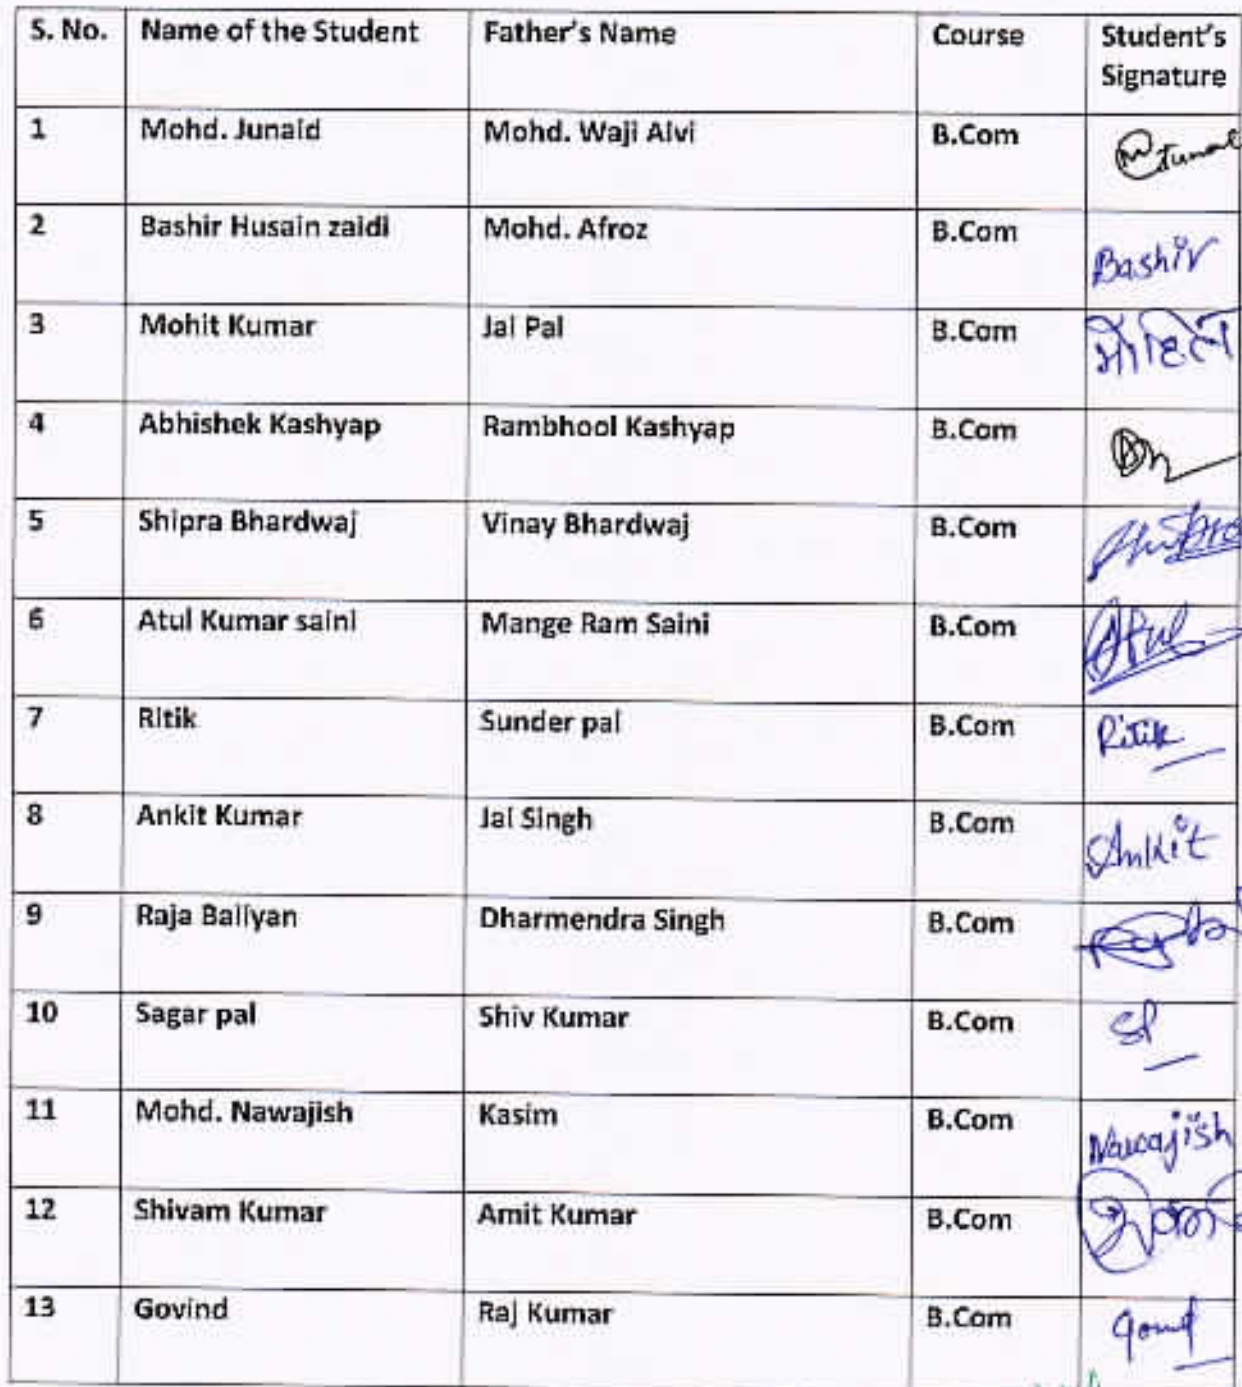 S. No. Name of the Student Father's Name Course Student's Signature
1 Mohd. Junaid Mohd. Waji Alvi B.Com
2 Bashir Husain zaidi Mohd. Afroz B.Com Bashir
3 Mohit Kumar Jai Pal B.Com मोहित
4 Abhishek Kashyap Rambhool Kashyap B.Com
5 Shipra Bhardwaj Vinay Bhardwaj B.Com
6 Atul Kumar saini Mange Ram Saini B.Com Atul
7 Ritik Sunder pal B.Com Ritik
8 Ankit Kumar Jai Singh B.Com Ankit
9 Raja Baliyan Dharmendra Singh B.Com
10 Sagar pal Shiv Kumar B.Com
11 Mohd. Nawajish Kasim B.Com Nawajish
12 Shivam Kumar Amit Kumar B.Com
13 Govind Raj Kumar B.Com